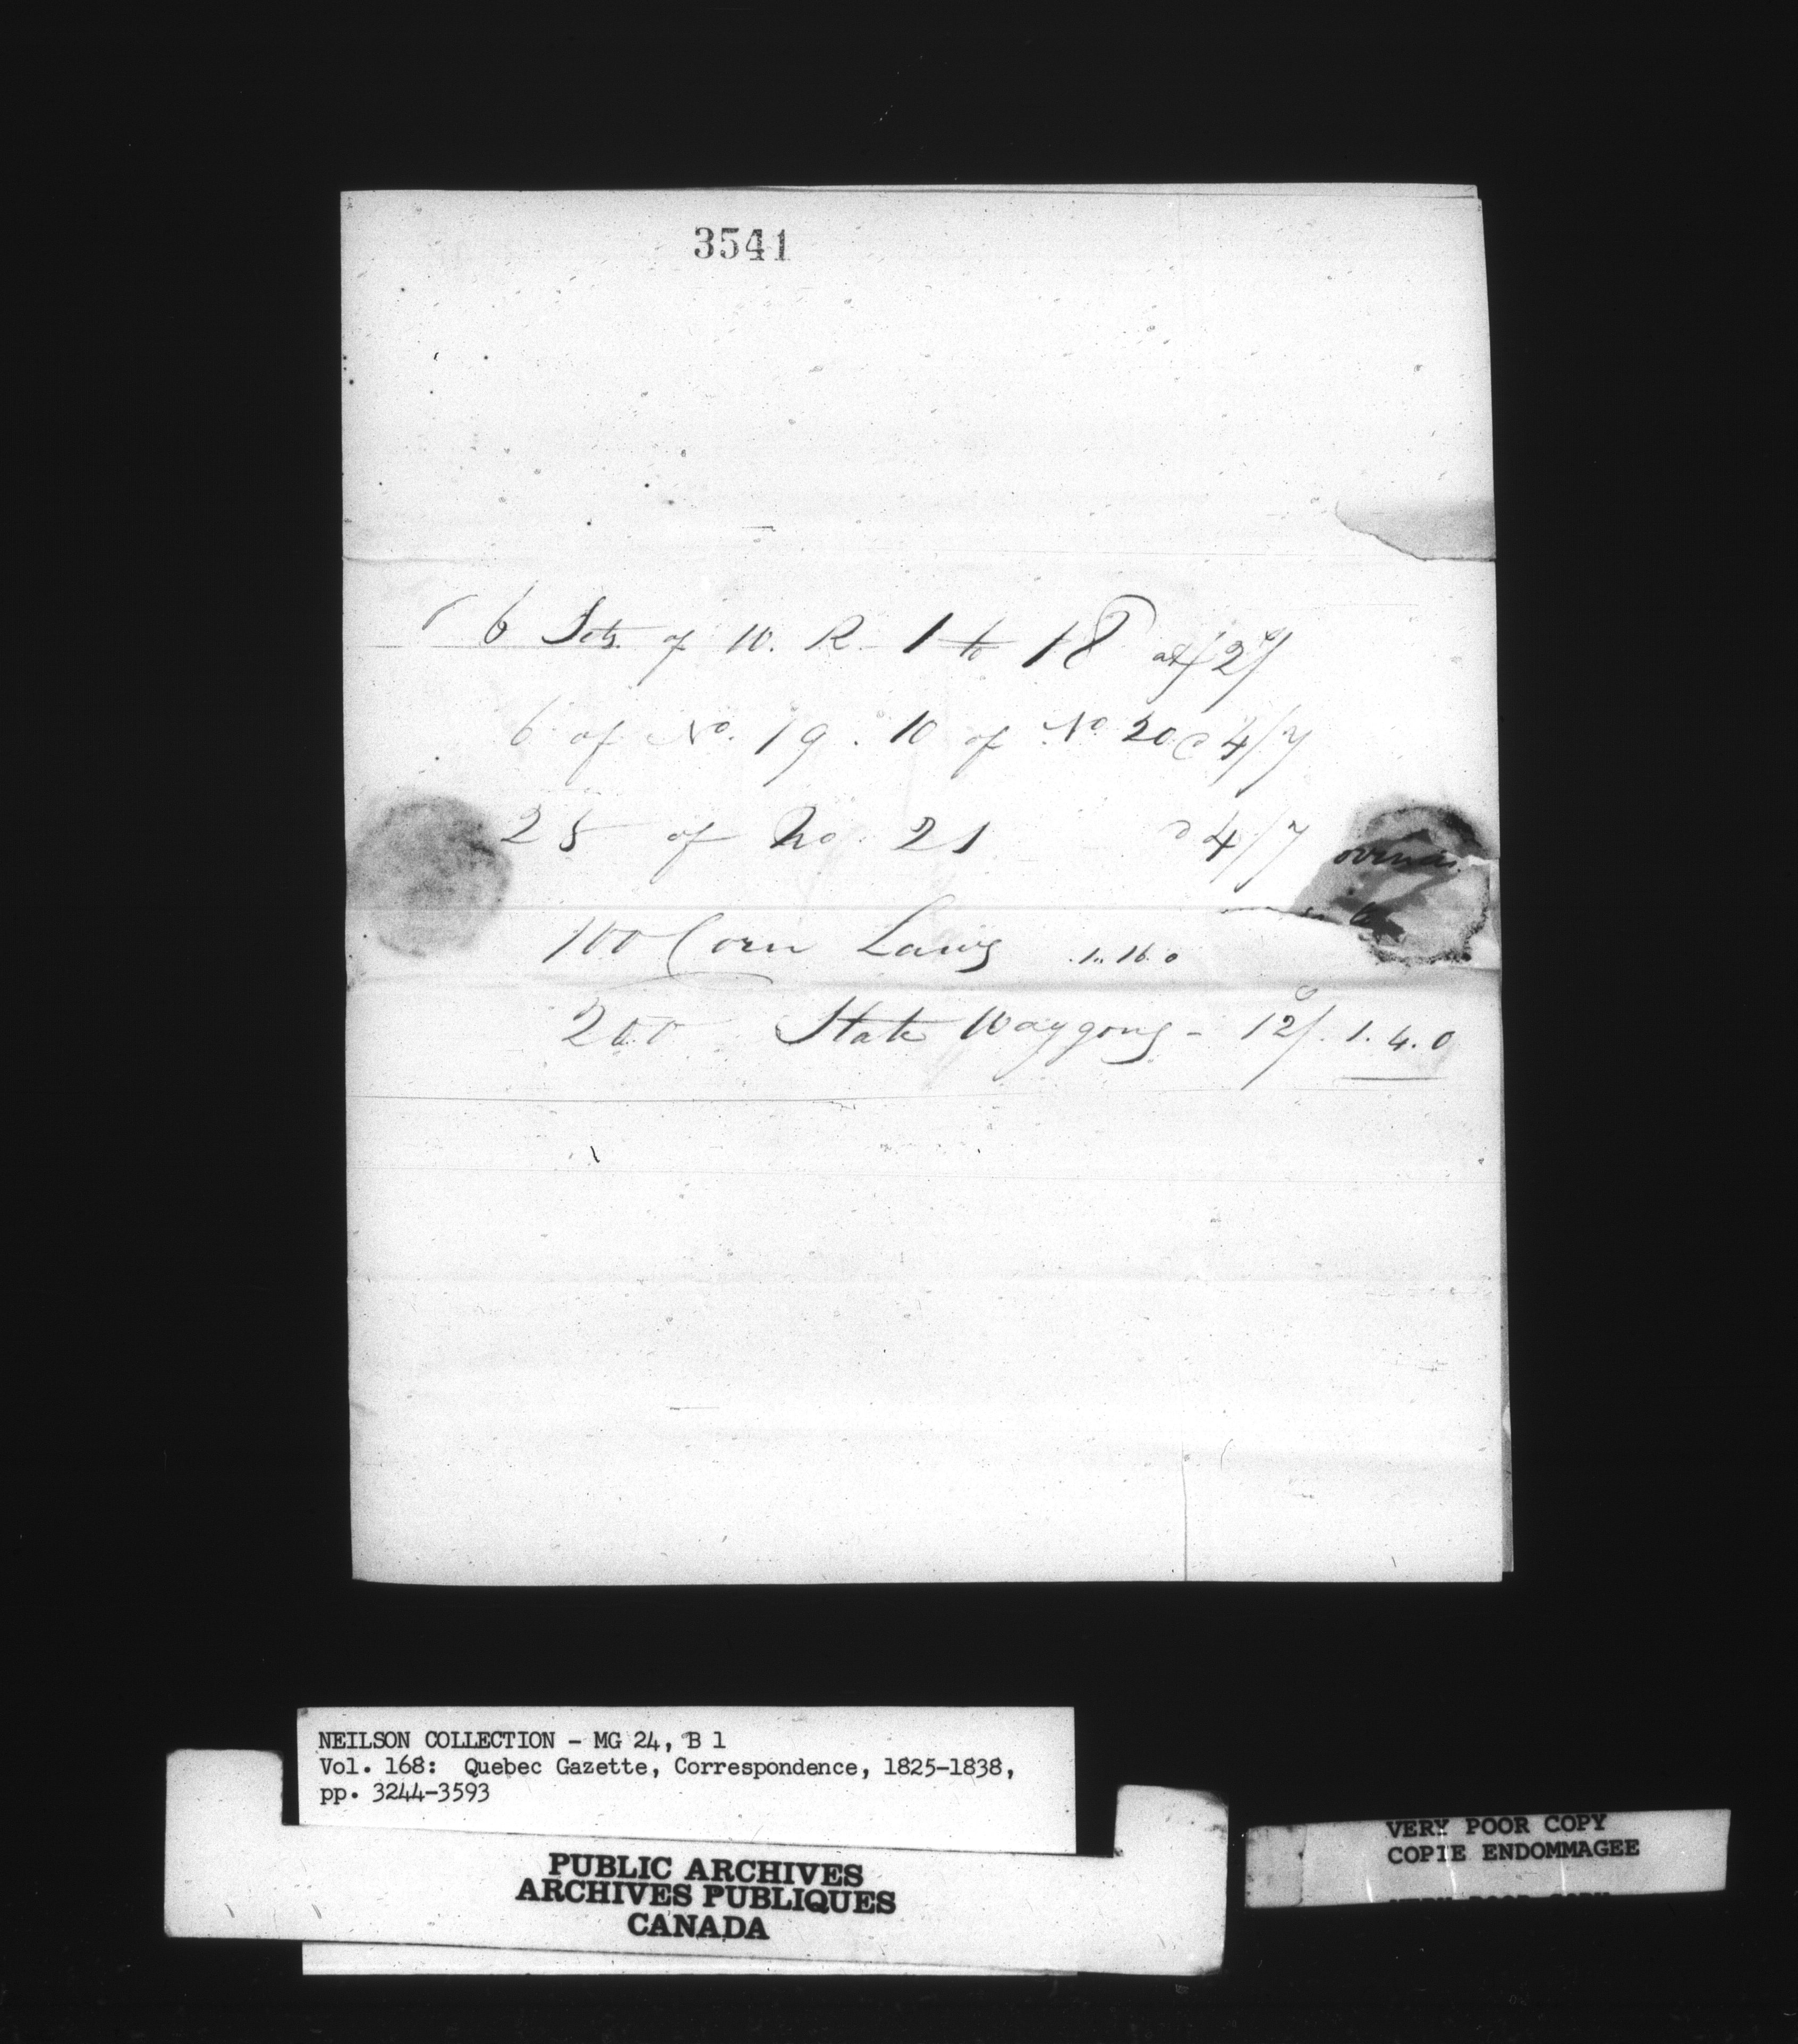 3541
6 Sets of W. R 1 to 18 at 2/
6 of No. 19 . 10 of No 20 @ 4/7
25 of No. 21 @ 4/7
100 Corn Laws 1.. 16. 0
200 State Waygons - 12/. 1. 4. 0
NEILSON COLLECTION - MG 24, B 1
Vol. 168: Quebec Gazette, Correspondence, 1825-1838,
pp. 3244-3593
PUBLIC ARCHIVES
ARCHIVES PUBLIQUES
CANADA
VERY POOR COPY
COPIE ENDOMMAGEE